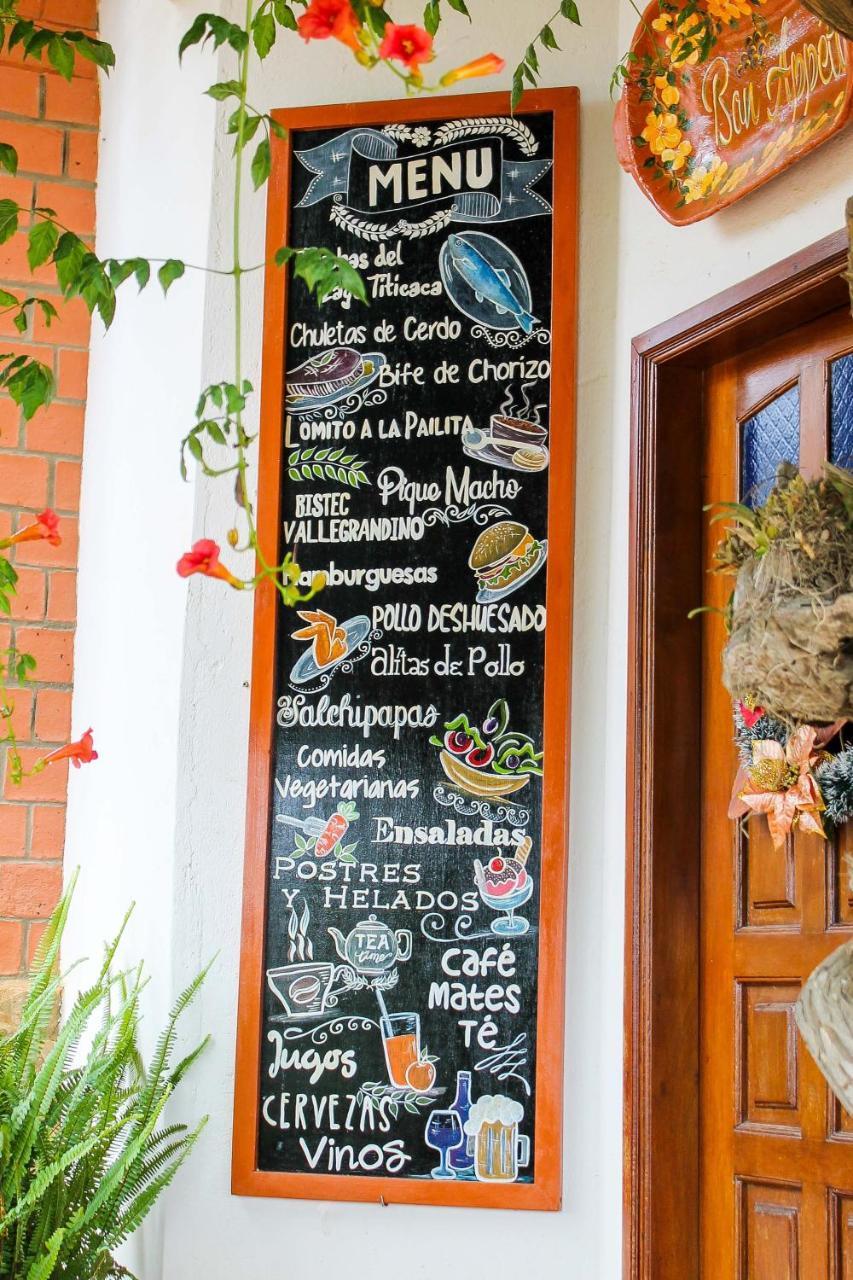 MENU
del
Titicaca
Chuletas de Cerdo
Bife de Chorizo
LOMITO A LA PAILITA
Pique Macho
BISTEC
VALLEGRANDINO
Hamburguesas
POLLO DESHUESADO
alitas de Pollo
Salchipapas
Comidas
Vegetarianas
Ensaladas
POSTRES
Y HELADOS
TEA
time
café
MATES
TÉ
Jugos
CERVEZAS
Vinos
Bon Appetit